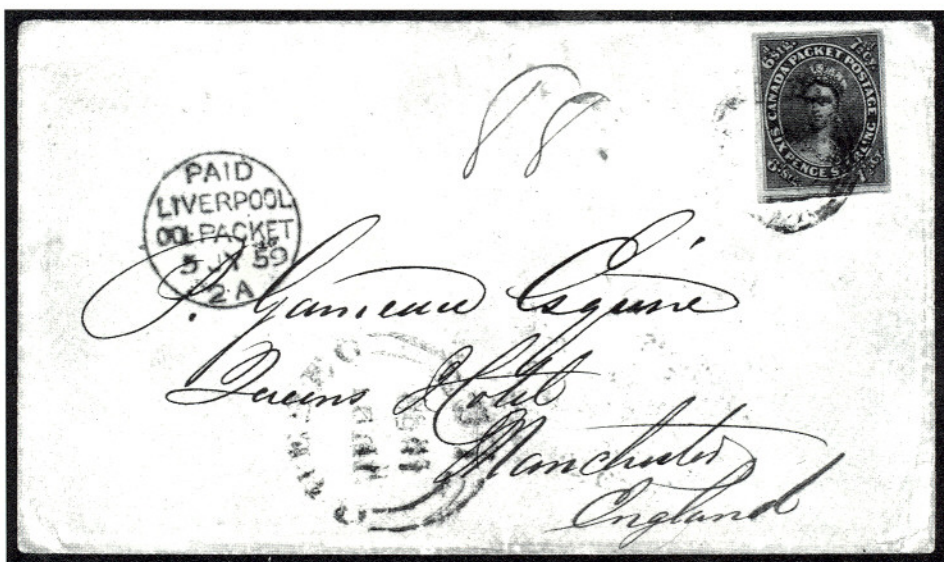 6d Stg. 7½d Cy.
CANADA PACKET POSTAGE
SIX PENCE STERLING
88
PAID
LIVERPOOL
COL PACKET
5 JY 59
2 A
P. Garneau Esquire
Queens Hotel
Manchester
England